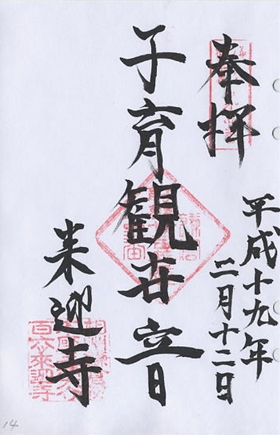 奉拝
平成十九年
二月十二日
子育観世音
来迎寺
14